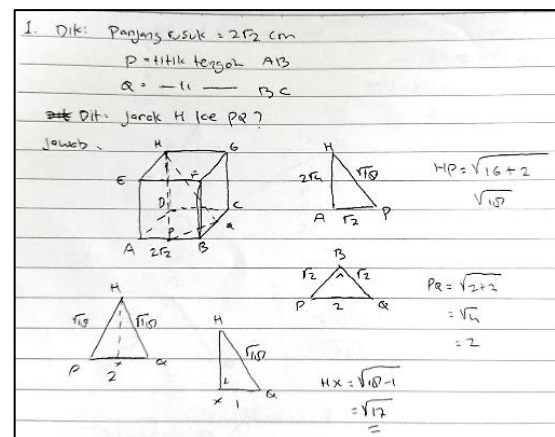 1. Dik: Panjang rusuk = 2√2 cm
P = titik tengah AB
Q = —〃— BC
Dit: Jarak H ke PQ?
Jawab:
H G
E F
D C
P Q
A 2√2 B
H
2√4 √18
A √2 P
HP = √16+2
√18
B
√2 √2
P 2 Q
PQ = √2+2
= √4
= 2
H
√18 √18
P x Q
2
H
√18
x 1 Q
HX = √18-1
= √17